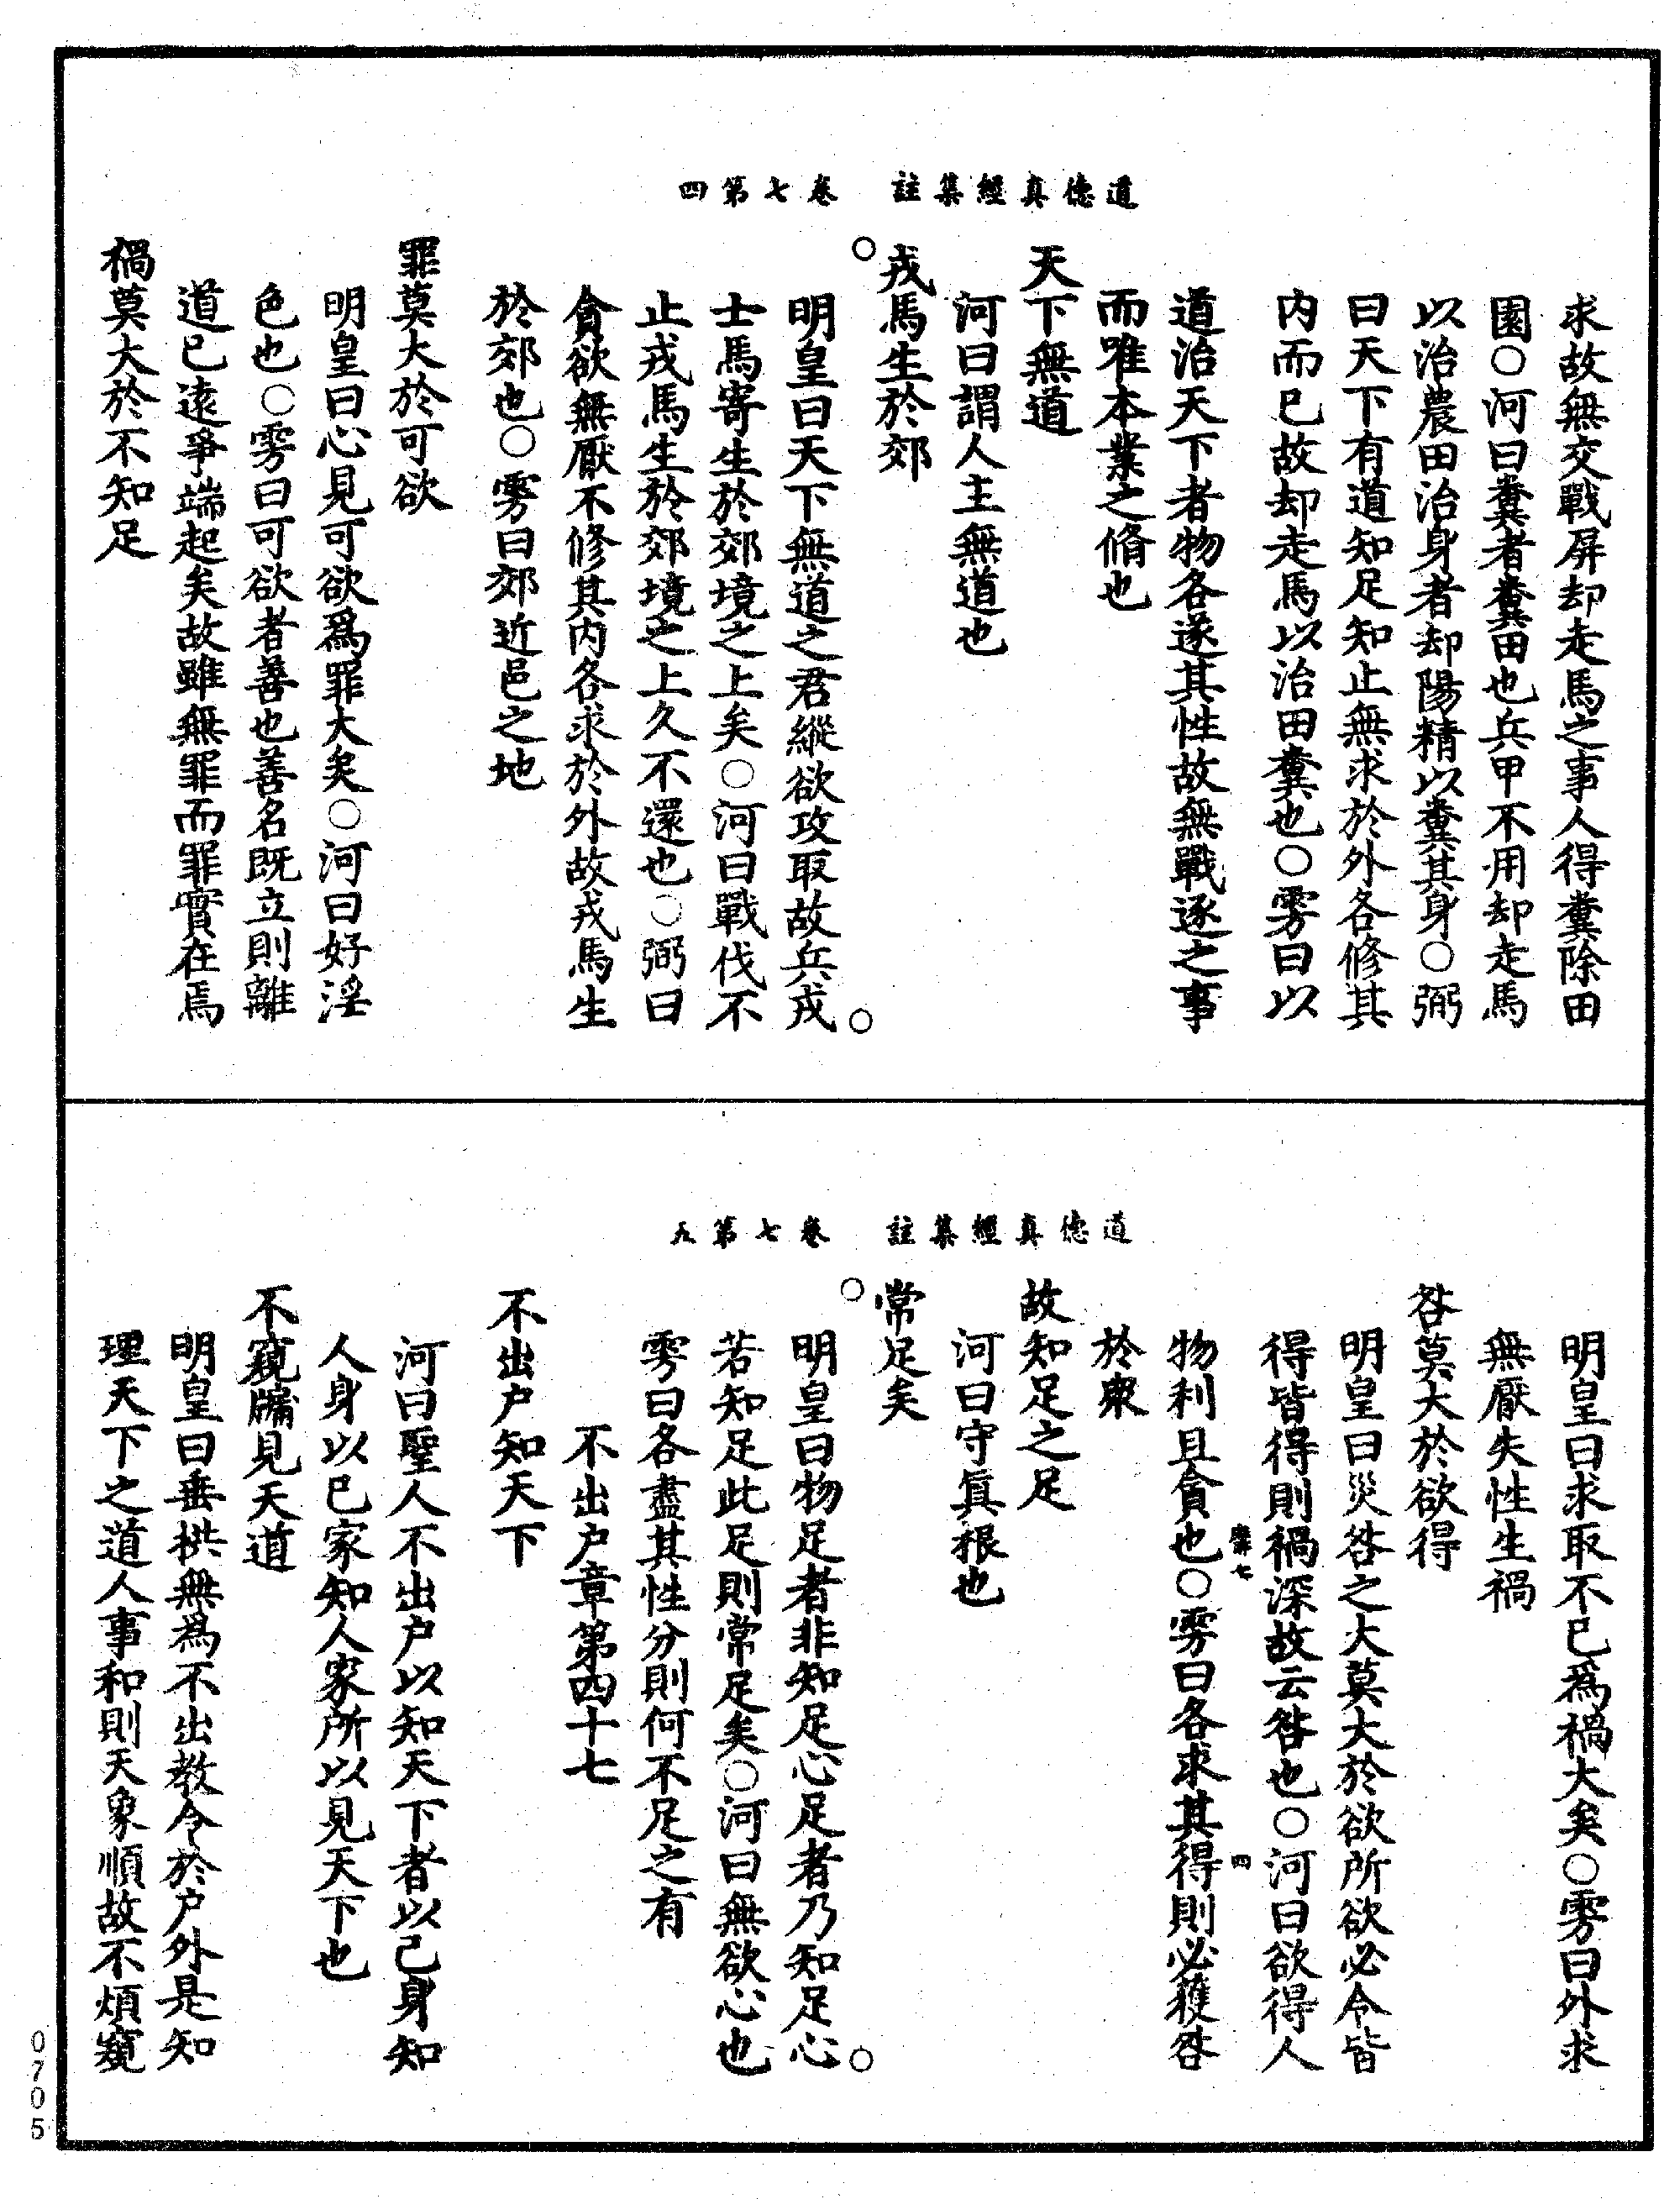 道德真經集註　卷七第四
求故無交戰屏却走馬之事人得糞除田
園○河曰糞者糞田也兵甲不用却走馬
以治農田治身者却陽精以糞其身○弼
曰天下有道知足知止無求於外各修其
内而已故却走馬以治田糞也○雱曰以
道治天下者物各遂其性故無戰逐之事
而唯本業之脩也
天下無道
河曰謂人主無道也
戎馬生於郊
明皇曰天下無道之君縱欲攻取故兵戎
士馬寄生於郊境之上矣○河曰戰伐不
止戎馬生於郊境之上久不還也○弼曰
貪欲無厭不修其内各求於外故戎馬生
於郊也○雱曰郊近邑之地
罪莫大於可欲
明皇曰心見可欲爲罪大矣○河曰好淫
色也○雱曰可欲者善也善名既立則離
道已遠爭端起矣故雖無罪而罪實在焉
禍莫大於不知足
道德真經集註　卷七第五
明皇曰求取不已爲禍大矣○雱曰外求
無厭失性生禍
咎莫大於欲得
明皇曰災咎之大莫大於欲所欲必令皆
得皆得則禍深故云咎也○河曰欲得人
四
物利且貪也○雱曰各求其得則必獲咎
於衆
故知足之足
河曰守真根也
常足矣
明皇曰物足者非知足心足者乃知足心
若知足此足則常足矣○河曰無欲心也
雱曰各盡其性分則何不足之有
不出户章第四十七
不出户知天下
河曰聖人不出户以知天下者以己身知
人身以已家知人家所以見天下也
不窺牖見天道
明皇曰垂拱無爲不出教令於户外是知
理天下之道人事和則天象順故不煩窺
0705